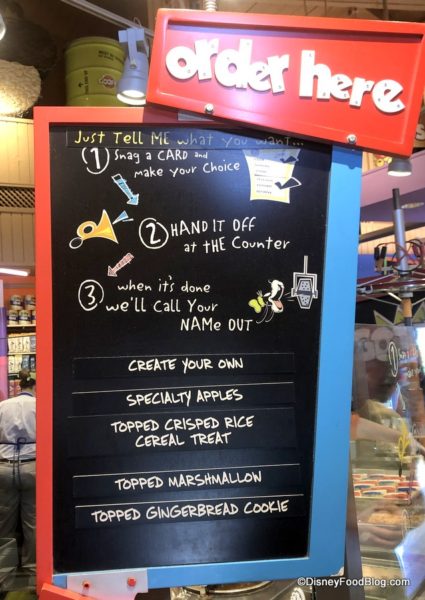 order here
Just Tell ME what you want...
1 Snag a CARD and
make your Choice
2 HAND IT OFF
at tHE Counter
3 when it's done
we'll Call Your
NAMe OUT
CREATE YOUR OWN
SPECIALTY APPLES
TOPPED CRISPED RICE
CEREAL TREAT
TOPPED MARSHMALLOW
TOPPED GINGERBREAD COOKIE
©DisneyFoodBlog.com